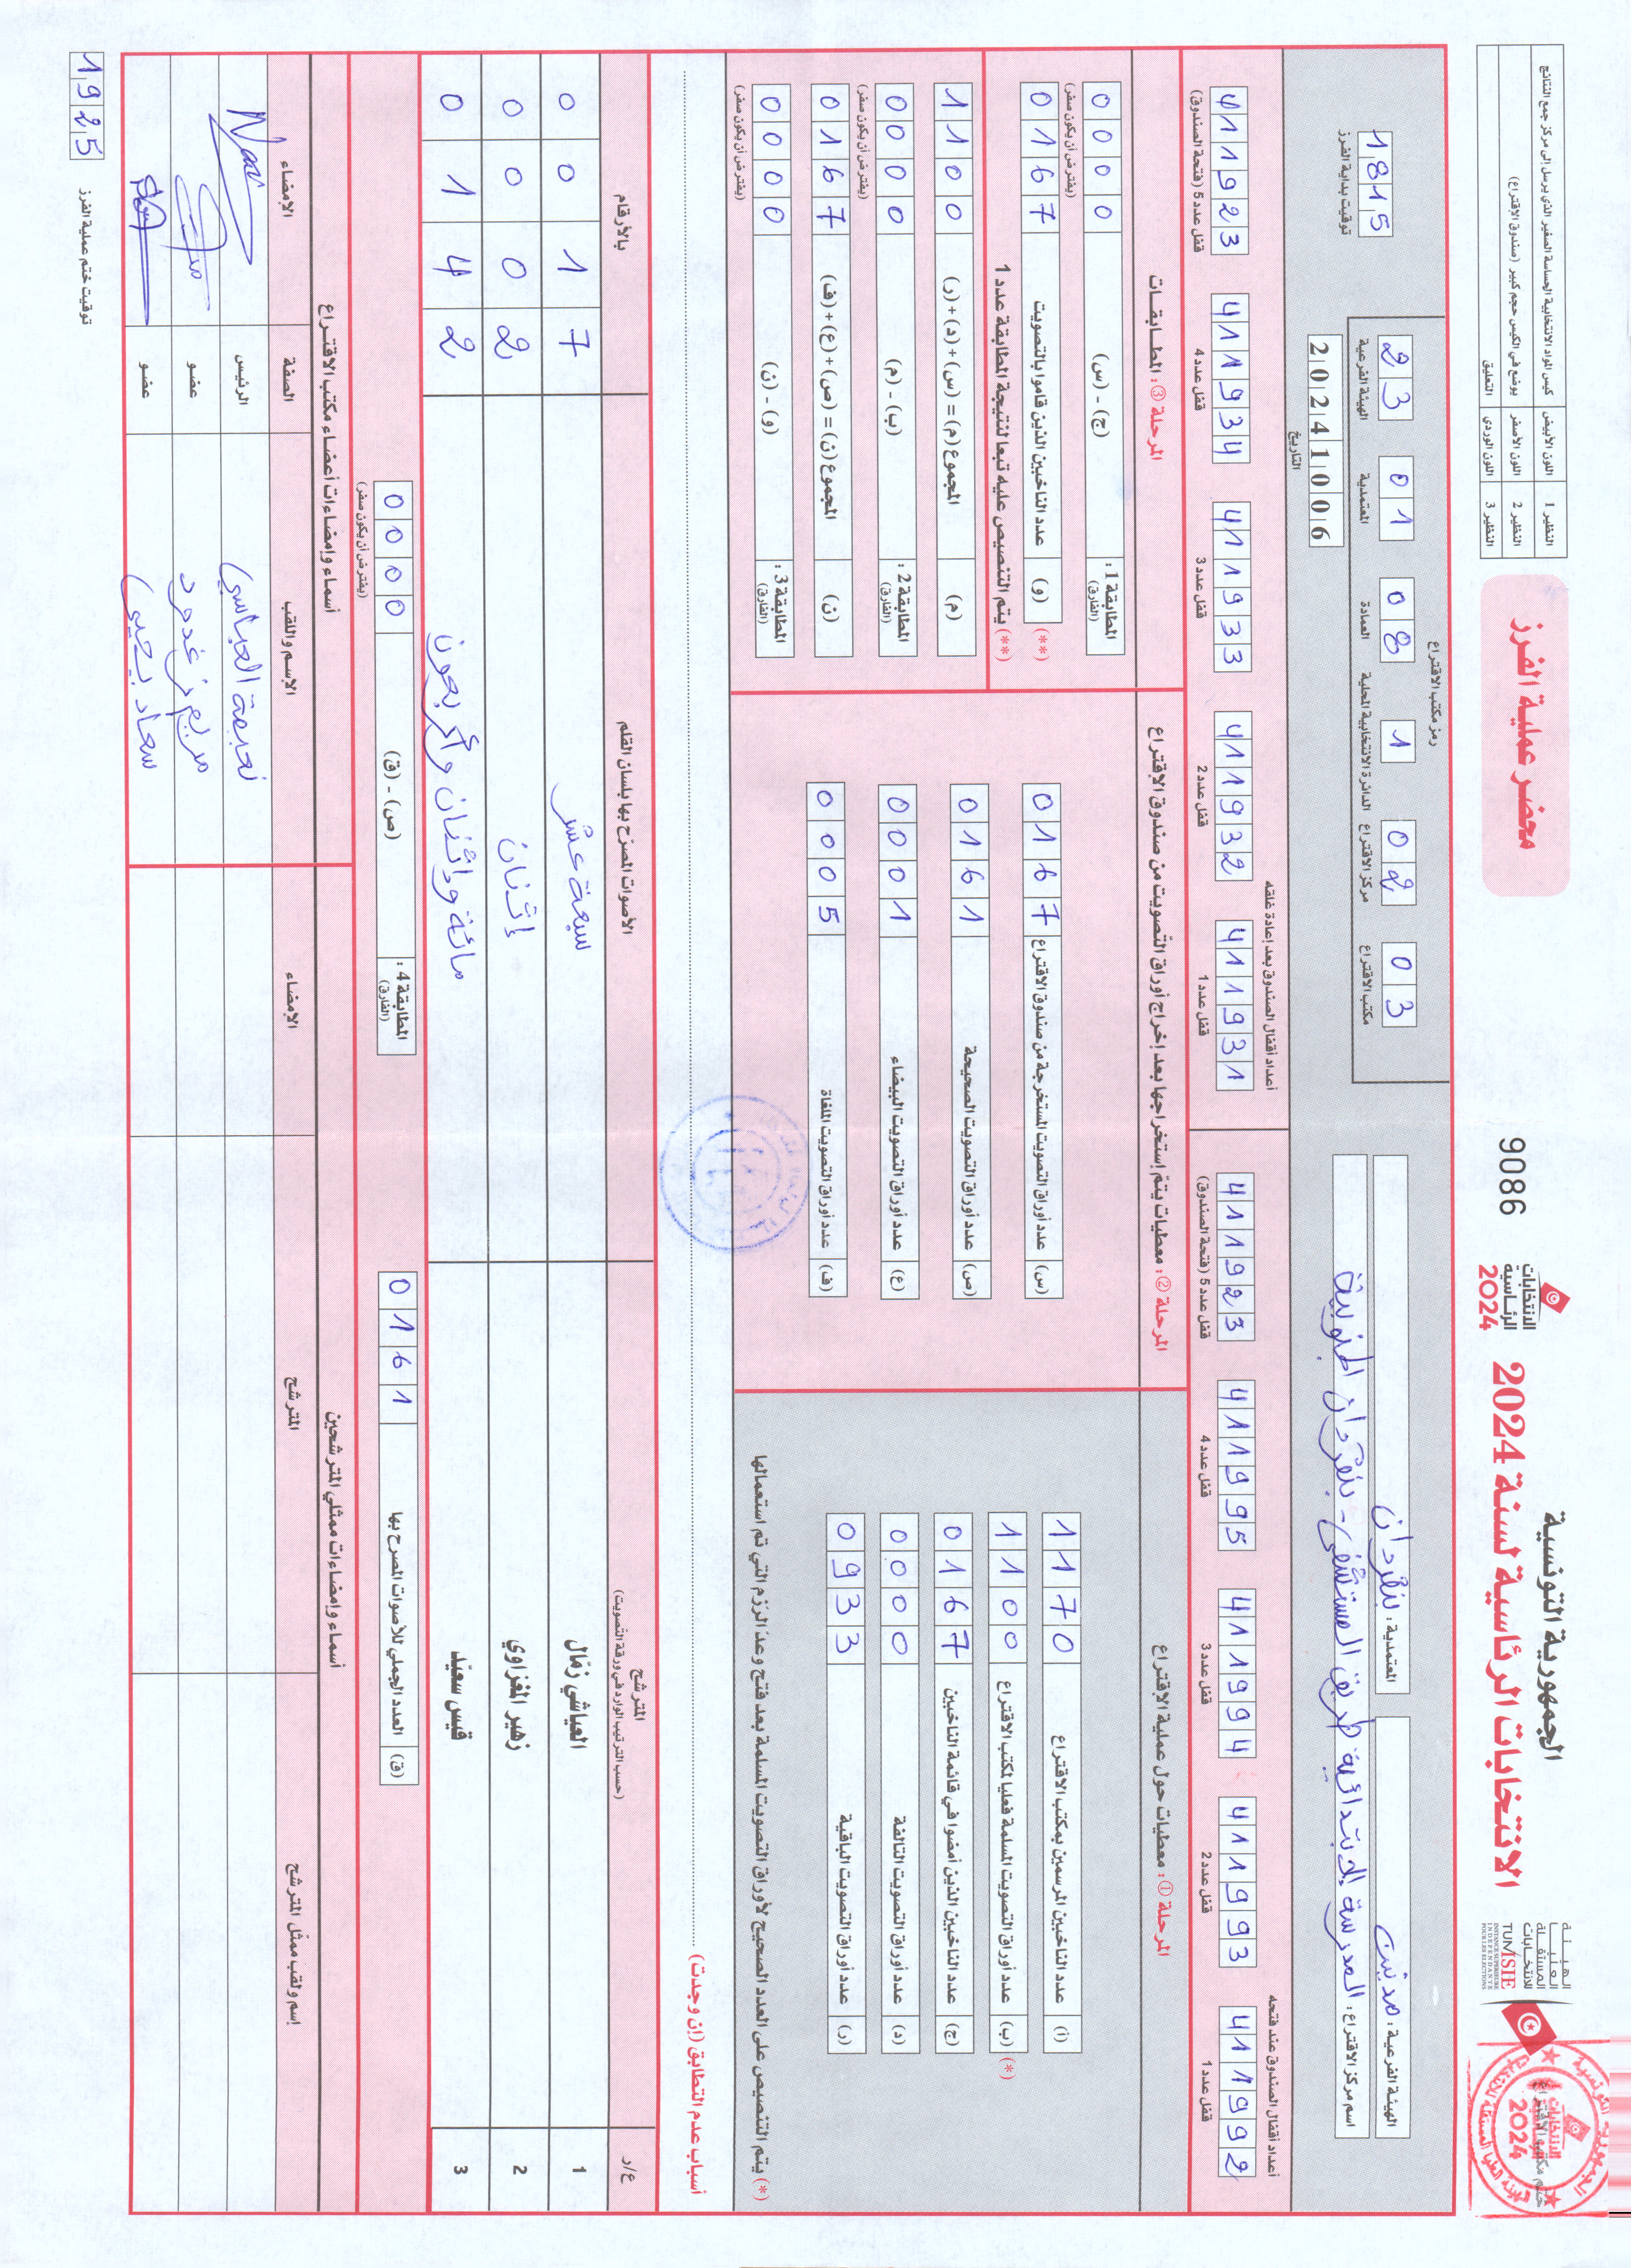 الجمهورية التونسية
الانتخابات الرئاسية لسنة 2024
الهيئة العليا المستقلة للانتخابات
TUNISIE
INSTANCE SUPERIEURE INDEPENDANTE POUR LES ELECTIONS
الانتخابات الرئاسية 2024
9086
محضر عملية الفرز
النظير 1 اللون الأبيض كيس المواد الانتخابية الحساسة الصغير الذي يرسل إلى مركز جمع النتائج
النظير 2 اللون الأصفر يوضع في الكيس حجم كبير (صندوق الاقتراع)
النظير 3 اللون الوردي التعليق
الهيئة الفرعية : مدنين
المعتمدية : بنقردان
اسم مركز الاقتراع : المدرسة الابتدائية طريق المستشفى - بنقردان الجنوبية
رمز مكتب الاقتراع
03 مكتب الاقتراع
02 مركز الاقتراع
1 الدائرة الانتخابية المحلية
08 العمادة
01 المعتمدية
23 الهيئة الفرعية
20241006
التاريخ
1815
توقيت بداية الفرز
أعداد أقفال الصندوق عند فتحه
411992 قفل عدد 1
411993 قفل عدد 2
411994 قفل عدد 3
411995 قفل عدد 4
411923 قفل عدد 5 (فتحة الصندوق)
أعداد أقفال الصندوق بعد إعادة غلقه
411931 قفل عدد 1
411932 قفل عدد 2
411933 قفل عدد 3
411934 قفل عدد 4
411923 قفل عدد 5 (فتحة الصندوق)
المرحلة ① : معطيات حول عملية الاقتراع
(أ) عدد الناخبين المرسمين بمكتب الاقتراع 1170
(*) (ب) عدد أوراق التصويت المسلمة فعليا لمكتب الاقتراع 1100
(ج) عدد الناخبين الذين أمضوا في قائمة الناخبين 0167
(د) عدد أوراق التصويت التالفة 0000
(ر) عدد أوراق التصويت الباقية 0933
(*) يتم التنصيص على العدد الصحيح لأوراق التصويت المسلمة بعد فتح وعد الرزم التي تم استعمالها
المرحلة ② : معطيات يتم إستخراجها بعد إخراج أوراق التصويت من صندوق الاقتراع
(س) عدد أوراق التصويت المستخرجة من صندوق الاقتراع 0167
(ص) عدد أوراق التصويت الصحيحة 0161
(ع) عدد أوراق التصويت البيضاء 0001
(ف) عدد أوراق التصويت الملغاة 0005
المرحلة ③ : المطابقات
المطابقة 1 : (الفارق) (ج) - (س) 0000
(يفترض أن يكون صفر)
(**) (و) عدد الناخبين الذين قاموا بالتصويت 0167
(**) يتم التنصيص عليه تبعا لنتيجة المطابقة عدد 1
(م) المجموع (م) = (س) + (د) + (ر) 1100
المطابقة 2 : (الفارق) (ب) - (م) 0000
(يفترض أن يكون صفر)
(ن) المجموع (ن) = (ص) + (ع) + (ف) 0167
المطابقة 3 : (الفارق) (و) - (ن) 0000
(يفترض أن يكون صفر)
أسباب عدم التطابق (إن وجدت)
ع/ر المترشح (حسب الترتيب الوارد في ورقة التصويت) الأصوات المصرّح بها بلسان القلم بالأرقام
1 العياشي زمّال سبعة عشر 0017
2 زهير المغزاوي إثنان 0002
3 قيس سعيّد مائة وإثنان وأربعون 0142
(ق) العدد الجملي للأصوات المصرح بها 0161
المطابقة 4 : (الفارق) (ص) - (ق) 0000
(يفترض أن يكون صفر)
أسماء وإمضاءات ممثلي المترشحين
إسم ولقب ممثل المترشح المترشح الإمضاء
أسماء وإمضاءات أعضاء مكتب الاقتراع
الإسم واللقب الصفة الإمضاء
العباسي الرئيس
مريم عضو
سعاد يحيى عضو
1925 توقيت ختم عملية الفرز